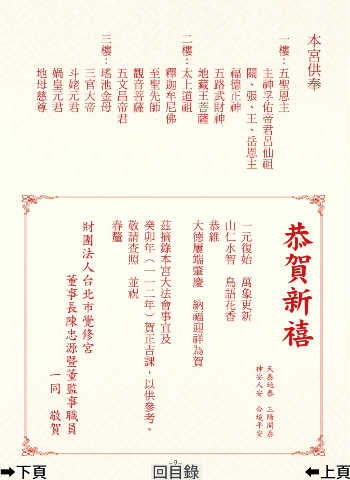 本宮供奉
一樓：五聖恩主
主神孚佑帝君呂仙祖
關、張、王、岳恩主
福德正神
五路武財神
地藏王菩薩
二樓：太上道祖
釋迦牟尼佛
至聖先師
觀音菩薩
五文昌帝君
三樓：瑤池金母
三官大帝
斗姥元君
媧皇元君
地母慈尊
恭賀新禧
天泰地泰 三陽開泰
神安人安 合境平安
一元復始 萬象更新
山仁水智 鳥語花香
恭維
大德履端肇慶 納福迎祥為賀
茲摘錄本宮大法會事宜及
癸卯年（一一二年）賀正吉課，以供參考。
敬請查照 並祝
春釐
財團法人台北市覺修宮
董事長陳忠源暨董監事職員
一同 敬賀
-9-
➡下頁
回目錄
⬅上頁